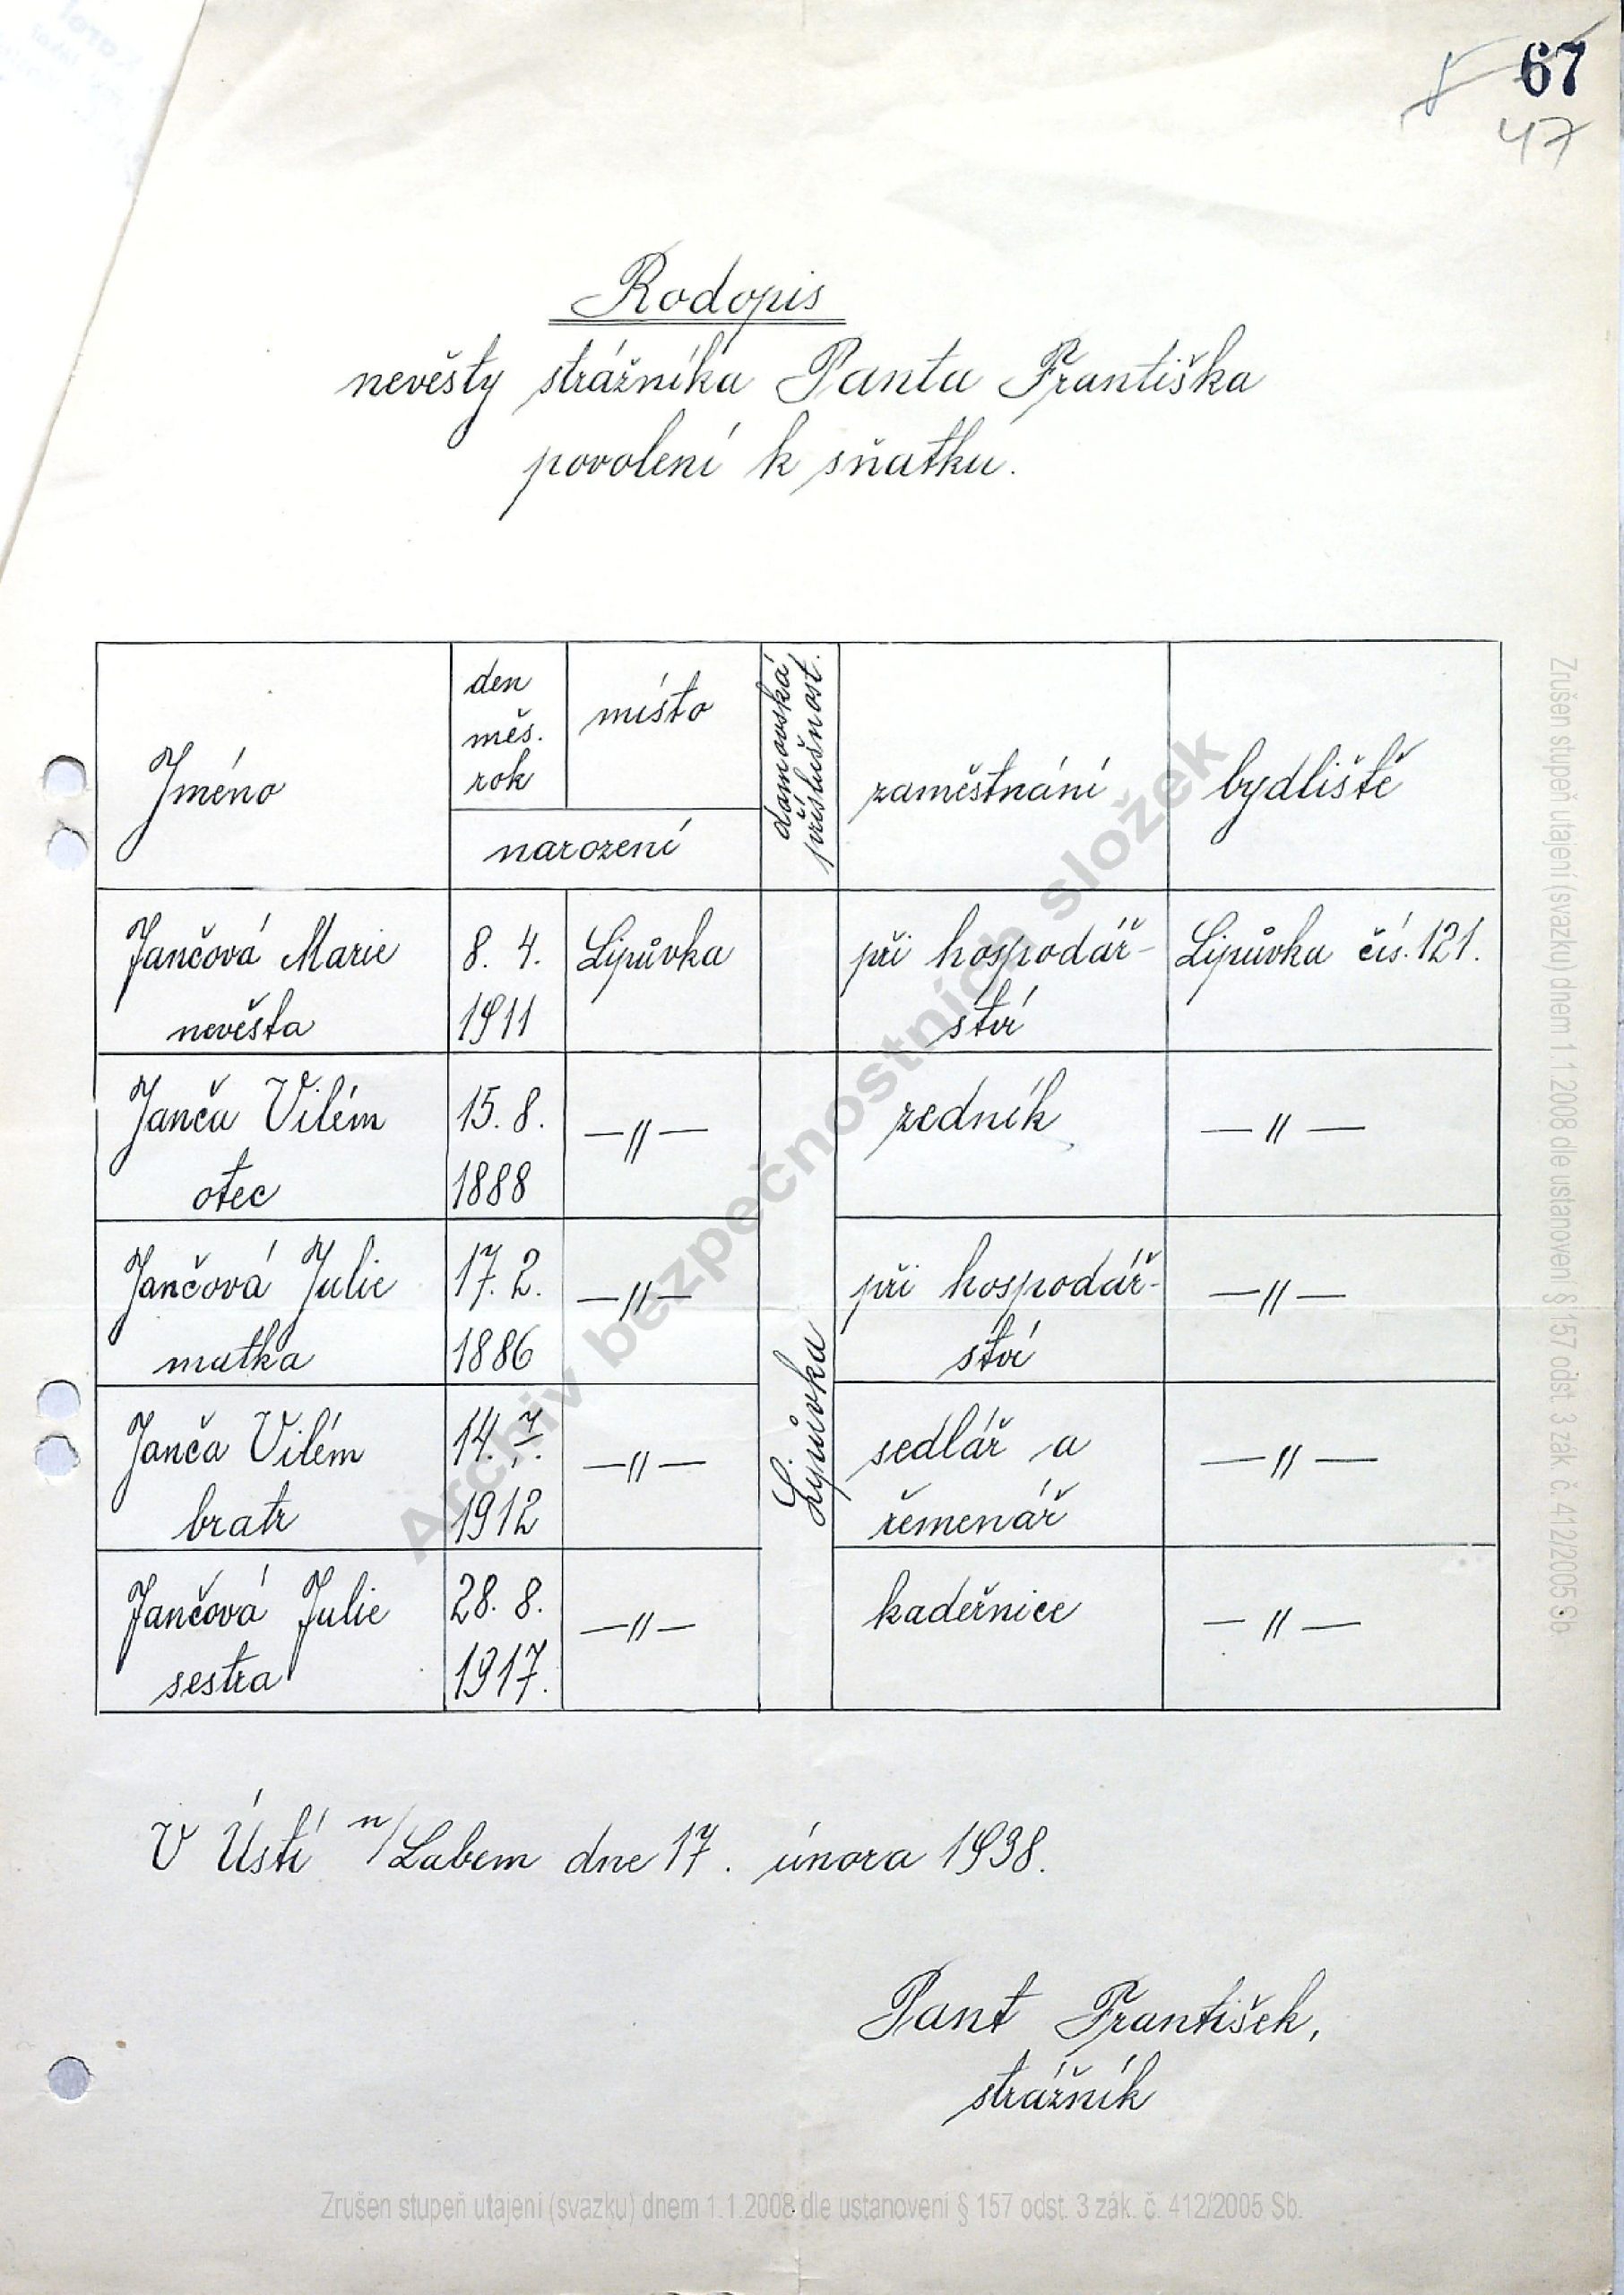 67
47
Rodopis
nevěsty strážníka Panta Františka
povolení k sňatku.
Jméno
den
měs.
rok
místo
narození
domovská
příslušnost.
zaměstnání
bydliště
Jančová Marie
nevěsta
8. 4.
1911
Lipůvka
při hospodář-
ství
Lipůvka čís. 121.
Janča Vilém
otec
15. 8.
1888
—〃—
zedník
—〃—
Jančová Julie
matka
17. 2.
1886
—〃—
při hospodář-
ství
—〃—
Janča Vilém
bratr
14. 7.
1912
—〃—
sedlář a
řemenář
—〃—
Jančová Julie
sestra
28. 8.
1917.
—〃—
kadeřnice
—〃—
Lipůvka
V Ústí n/Labem dne 17. února 1938.
Pant František,
strážník
Archiv bezpečnostních složek
Zrušen stupeň utajení (svazku) dnem 1.1.2008 dle ustanovení § 157 odst. 3 zák. č. 412/2005 Sb.
Zrušen stupeň utajení (svazku) dnem 1.1.2008 dle ustanovení § 157 odst. 3 zák. č. 412/2005 Sb.